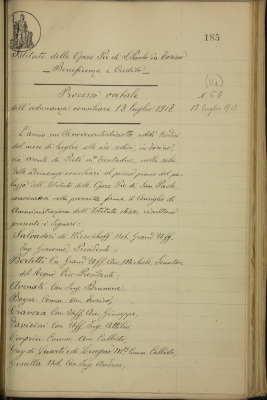 185
Istituto delle Opere Pie di S. Paolo in Torino
Beneficenza e Credito
Processo verbale
dell'adunanza consiliare 13 luglio 1918.
N. 68
13 luglio 1918
L'anno millenovecentodiciotto addì tredici
del mese di luglio alle ore sedici, in Torino,
via Monte di Pietà N. trentadue, nella sala
delle adunanze consiliari al primo piano del pa-
lazzo dell'Istituto delle Opere Pie di San Paolo,
convocato nelle prescritte forme il Consiglio di
Amministrazione dell'Istituto stesso risultano
presenti i Signori:
Salvadori di Wiesenhoff Nob. Grand' Uff.
Ing. Giacomo, Presidente;
Bertetti Grand' Uff. Avv. Michele, Senatore
del Regno, Vice Presidente;
Avenati Cav. Ing.
Boyer Comm.
Cravera Cav. Uff. Avv. Giuseppe,
Cavicini Cav. Uff. Ing. Attilio,
Comm. Avv. Callisto,
Gay di Quarti Comm. Callisto,
Ginella Nob. Cav. Ing.